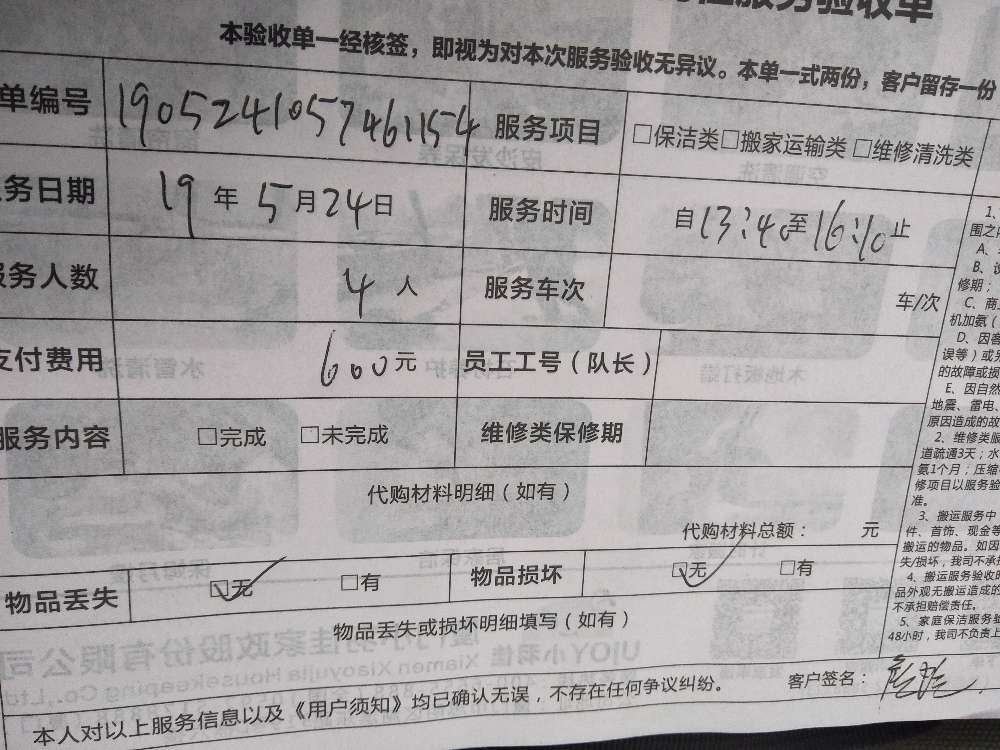 服务验收单
本验收单一经核签，即视为对本次服务验收无异议。本单一式两份，客户留存一份
单编号 1905241057461154 服务项目 □保洁类□搬家运输类 □维修清洗类
务日期 19年 5月24日 服务时间 自13:40至16:10止
服务人数 4 人 服务车次 车/次
支付费用 600元 员工工号（队长）
服务内容 □完成 □未完成 维修类保修期
代购材料明细（如有）
代购材料总额： 元
物品丢失 □无 □有 物品损坏 □无 □有
物品丢失或损坏明细填写（如有）
本人对以上服务信息以及《用户须知》均已确认无误，不存在任何争议纠纷。 客户签名：
1、
围之内
A、
B、设
修期；
C、商
机加氨（
D、因客
误等）或另
的故障或损
E、因自然
地震、雷电、
原因造成的故
2、维修类服
道疏通3天；水
氨1个月；压缩
修项目以服务验
准。
3、搬运服务中
件、首饰、现金等
搬运的物品。如因
失/损坏，我司不承担
4、搬运服务验收时
品外观无搬运造成的
不承担赔偿责任。
5、家庭保洁服务验
48小时，我司不负责上